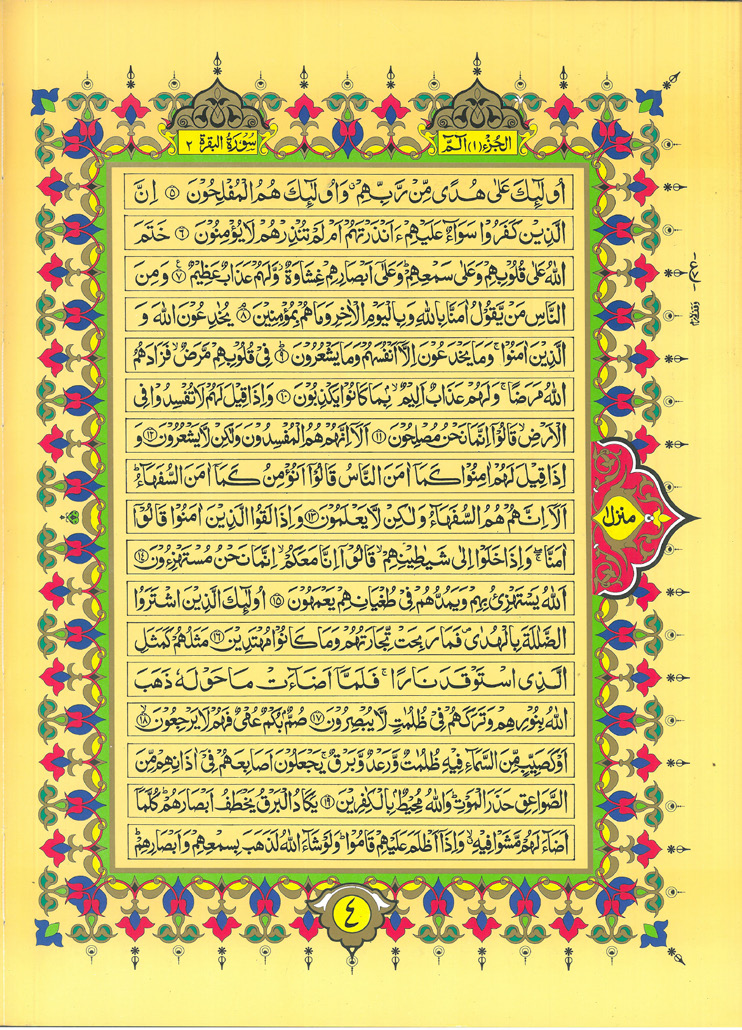 الجزء (١) الٓمّٓ
سورة البقرة ٢
اُولٰٓئِكَ عَلٰى هُدًى مِّنْ رَّبِّهِمْ ۙ وَاُولٰٓئِكَ هُمُ الْمُفْلِحُوْنَ ۝٥ اِنَّ
الَّذِيْنَ كَفَرُوْا سَوَآءٌ عَلَيْهِمْ ءَاَنْذَرْتَهُمْ اَمْ لَمْ تُنْذِرْهُمْ لَا يُؤْمِنُوْنَ ۝٦ خَتَمَ
اللّٰهُ عَلٰى قُلُوْبِهِمْ وَعَلٰى سَمْعِهِمْ ؕ وَعَلٰٓى اَبْصَارِهِمْ غِشَاوَةٌ ؗ وَّلَهُمْ عَذَابٌ عَظِيْمٌ ۝٧ وَمِنَ
النَّاسِ مَنْ يَّقُوْلُ اٰمَنَّا بِاللّٰهِ وَبِالْيَوْمِ الْاٰخِرِ وَمَا هُمْ بِمُؤْمِنِيْنَ ۝٨ يُخٰدِعُوْنَ اللّٰهَ وَ
الَّذِيْنَ اٰمَنُوْا ۚ وَمَا يَخْدَعُوْنَ اِلَّاۤ اَنْفُسَهُمْ وَمَا يَشْعُرُوْنَ ۝٩ فِيْ قُلُوْبِهِمْ مَّرَضٌ ۙ فَزَادَهُمُ
اللّٰهُ مَرَضًا ۚ وَلَهُمْ عَذَابٌ اَلِيْمٌۢ ۙ بِمَا كَانُوْا يَكْذِبُوْنَ ۝١٠ وَاِذَا قِيْلَ لَهُمْ لَا تُفْسِدُوْا فِي
الْاَرْضِ ۙ قَالُوْۤا اِنَّمَا نَحْنُ مُصْلِحُوْنَ ۝١١ اَلَاۤ اِنَّهُمْ هُمُ الْمُفْسِدُوْنَ وَلٰكِنْ لَّا يَشْعُرُوْنَ ۝١٢ وَ
اِذَا قِيْلَ لَهُمْ اٰمِنُوْا كَمَاۤ اٰمَنَ النَّاسُ قَالُوْۤا اَنُؤْمِنُ كَمَاۤ اٰمَنَ السُّفَهَآءُ ؕ
اَلَاۤ اِنَّهُمْ هُمُ السُّفَهَآءُ وَلٰكِنْ لَّا يَعْلَمُوْنَ ۝١٣ وَاِذَا لَقُوا الَّذِيْنَ اٰمَنُوْا قَالُوْۤا
اٰمَنَّا ۚۖ وَاِذَا خَلَوْا اِلٰى شَيٰطِيْنِهِمْ ۙ قَالُوْۤا اِنَّا مَعَكُمْ ۙ اِنَّمَا نَحْنُ مُسْتَهْزِءُوْنَ ۝١٤
اَللّٰهُ يَسْتَهْزِئُ بِهِمْ وَيَمُدُّهُمْ فِيْ طُغْيَانِهِمْ يَعْمَهُوْنَ ۝١٥ اُولٰٓئِكَ الَّذِيْنَ اشْتَرَوُا
الضَّلٰلَةَ بِالْهُدٰى ۪ فَمَا رَبِحَتْ تِّجَارَتُهُمْ وَمَا كَانُوْا مُهْتَدِيْنَ ۝١٦ مَثَلُهُمْ كَمَثَلِ
الَّذِي اسْتَوْقَدَ نَارًا ۚ فَلَمَّاۤ اَضَآءَتْ مَا حَوْلَهٗ ذَهَبَ
اللّٰهُ بِنُوْرِهِمْ وَتَرَكَهُمْ فِيْ ظُلُمٰتٍ لَّا يُبْصِرُوْنَ ۝١٧ صُمٌّۢ بُكْمٌ عُمْيٌ فَهُمْ لَا يَرْجِعُوْنَ ۝١٨
اَوْ كَصَيِّبٍ مِّنَ السَّمَآءِ فِيْهِ ظُلُمٰتٌ وَّرَعْدٌ وَّبَرْقٌ ۚ يَجْعَلُوْنَ اَصَابِعَهُمْ فِيْۤ اٰذَانِهِمْ مِّنَ
الصَّوَاعِقِ حَذَرَ الْمَوْتِ ؕ وَاللّٰهُ مُحِيْطٌۢ بِالْكٰفِرِيْنَ ۝١٩ يَكَادُ الْبَرْقُ يَخْطَفُ اَبْصَارَهُمْ ؕ كُلَّمَاۤ
اَضَآءَ لَهُمْ مَّشَوْا فِيْهِ ۙ وَاِذَاۤ اَظْلَمَ عَلَيْهِمْ قَامُوْا ؕ وَلَوْ شَآءَ اللّٰهُ لَذَهَبَ بِسَمْعِهِمْ وَاَبْصَارِهِمْ ؕ
منزل ١
٤